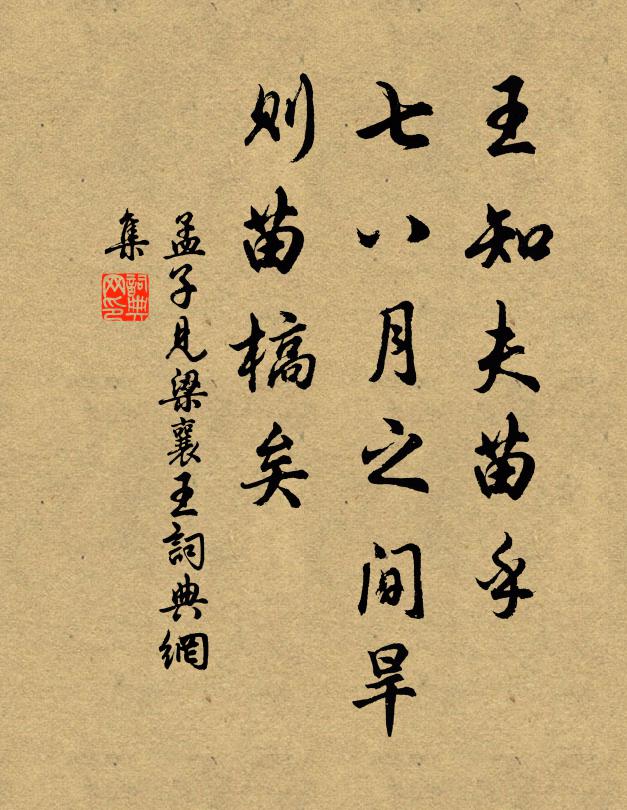 王知夫苗乎
七八月之间旱
则苗槁矣
孟子見梁襄王詞典網
集
詞典网印